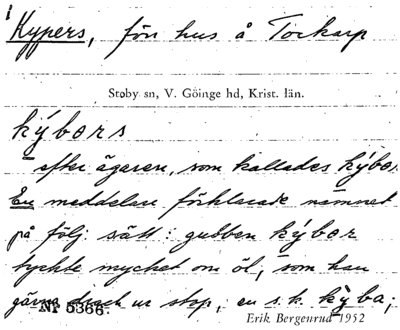 i
Kypers, förr hus å Torkarp
Stoby sn, V. Göinge hd, Krist. län.
kýbors
efter ägaren, som kallades kýbor.
En meddelare förklarade namnet
på följ. sätt: gubben kýbor
tyckte mycket om öl, som han
gärna drack ur stop, en s.k. kýba;
Nr 5366.
Erik Bergenrud 1952